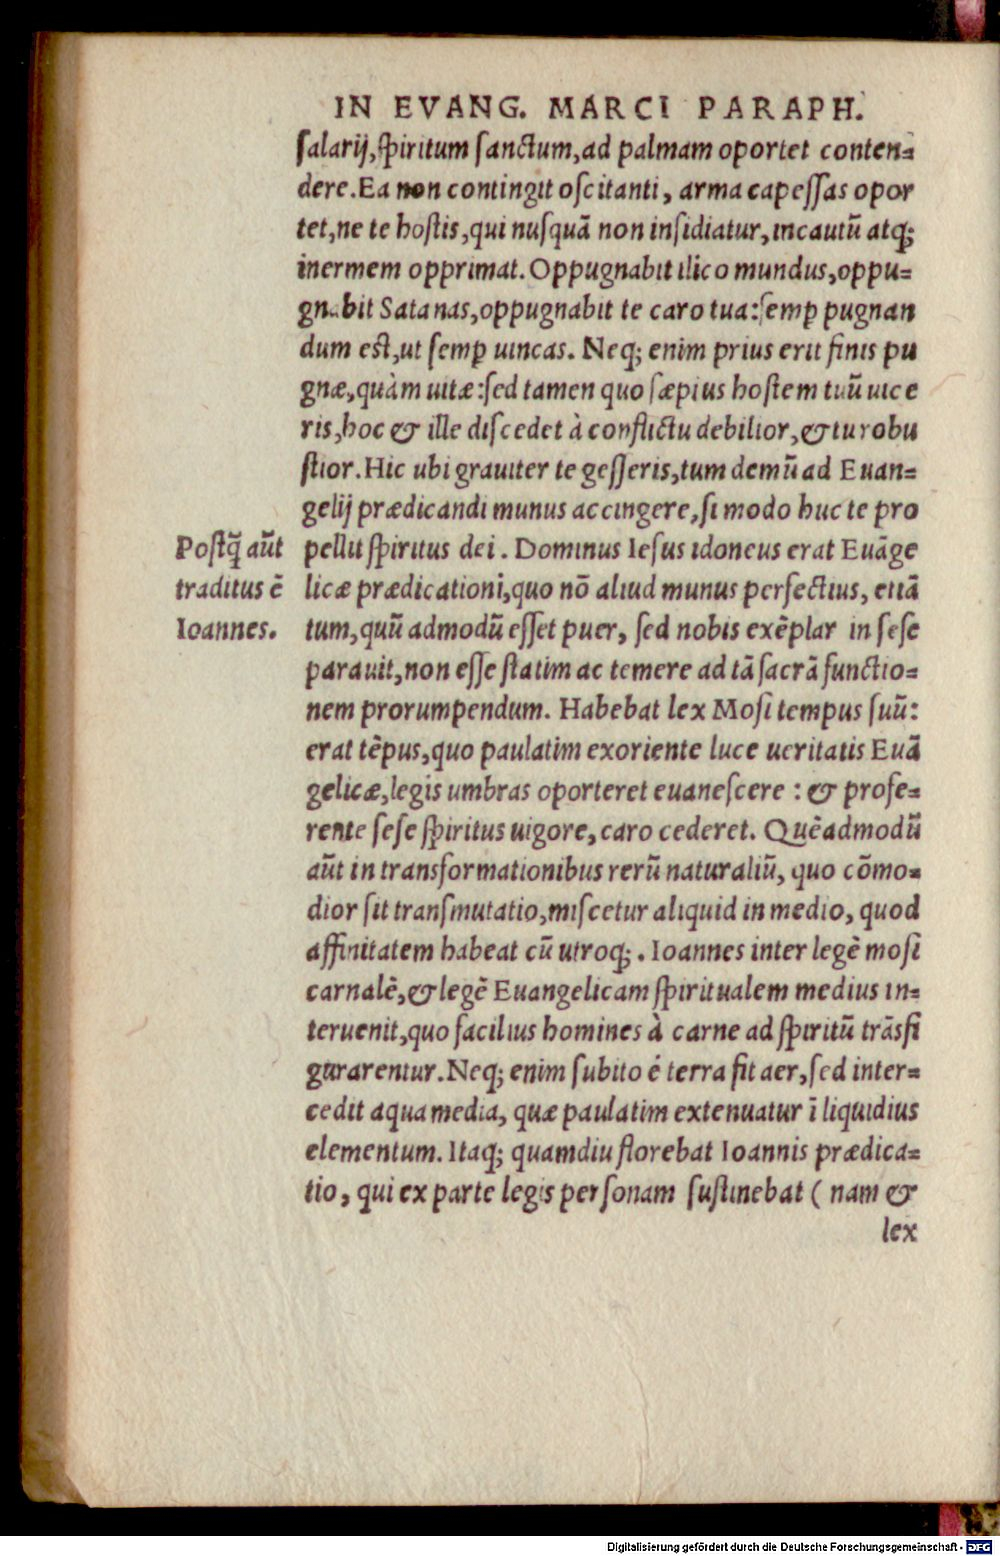 IN EVANG. MARCI PARAPH.
salarij, spiritum sanctum, ad palmam oportet conten=
dere. Ea non contingit oscitanti, arma capessas opor
tet, ne te hostis, qui nusquã non insidiatur, incautũ atq;
inermem opprimat. Oppugnabit ilico mundus, oppu=
gnabit Satanas, oppugnabit te caro tua: semꝑ pugnan
dum est, ut semꝑ uincas. Neq; enim prius erit finis pu
gnæ, quàm uitæ: sed tamen quo sæpius hostem tuũ uice
ris, hoc & ille discedet à conflictu debilior, & tu robu
stior. Hic ubi grauiter te gesseris, tum demũ ad Euan=
gelij prædicandi munus accingere, si modo huc te pro
Postq̃ aũt
traditus ẽ
Ioannes.
pellit spiritus dei. Dominus Iesus idoneus erat Euãge
licæ prædicationi, quo nõ aliud munus perfectius, etiã
tum, quũ admodũ esset puer, sed nobis exẽplar in sese
parauit, non esse statim ac temere ad tã sacrã functio=
nem prorumpendum. Habebat lex Mosi tempus suũ:
erat tẽpus, quo paulatim exoriente luce ueritatis Euã
gelicæ, legis umbras oporteret euanescere: & profe=
rente sese spiritus uigore, caro cederet. Quẽadmodũ
aũt in transformationibus rerũ naturaliũ, quo cõmo=
dior sit transmutatio, miscetur aliquid in medio, quod
affinitatem habeat cũ utroq;. Ioannes inter legẽ mosi
carnalẽ, & legẽ Euangelicam spiritualem medius in=
teruenit, quo facilius homines à carne ad spiritũ trãsfi
gurarentur. Neq; enim subito è terra fit aer, sed inter=
cedit aqua media, quæ paulatim extenuatur ĩ liquidius
elementum. Itaq; quamdiu florebat Ioannis prædica=
tio, qui ex parte legis personam sustinebat ( nam &
lex
Digitalisierung gefördert durch die Deutsche Forschungsgemeinschaft - DFG